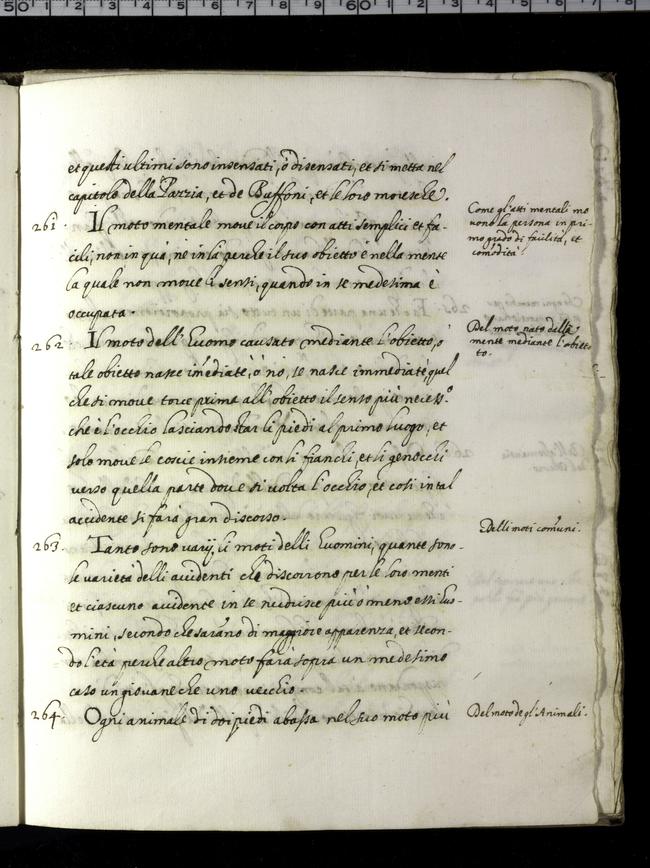 et questi ultimi sono insensati, ò disensati, et si metta nel
capitolo della Pazzia, et de Buffoni, et le loro moresche.
261. Il moto mentale move il corpo con atti semplici et fa-
cili, non in quà, ne in là perche il suo obietto è nella mente
la quale non move li sensi, quando in se medesima è
occupata.
Come gl'atti mentali mo
vono la persona in pri-
mo grado di facilità, et
comodità
262 Il moto dell'Huomo causato mediante l'obietto, ò
tale obietto nasce imediate, ò nò, se nasce immediate quel
che si move torce prima all'obietto il senso più necess.º
che è l'occhio lasciando star li piedi al primo luogo, et
solo move le coscie insieme con li fianchi, et li genocchi
verso quella parte dove si volta l'occhio, et cosi in tal
accidente si farà gran discorso.
Del moto nato dalla
mente mediante l'obiet
to.
263. Tanto sono varij li moti delli Huomini, quante sono
le varietà delli accidenti che discorrono per le loro menti
et ciascuno accidente in se più ò meno essi huo-
mini, secondo che sarano di maggiore apparenza, et secon-
do l'età perche altro moto farà sopra un medesimo
caso un giovane che uno vecchio.
Delli moti comuni.
264. Ogni animale di doi piedi abassa nel suo moto più
Del moto de gl'Animali.